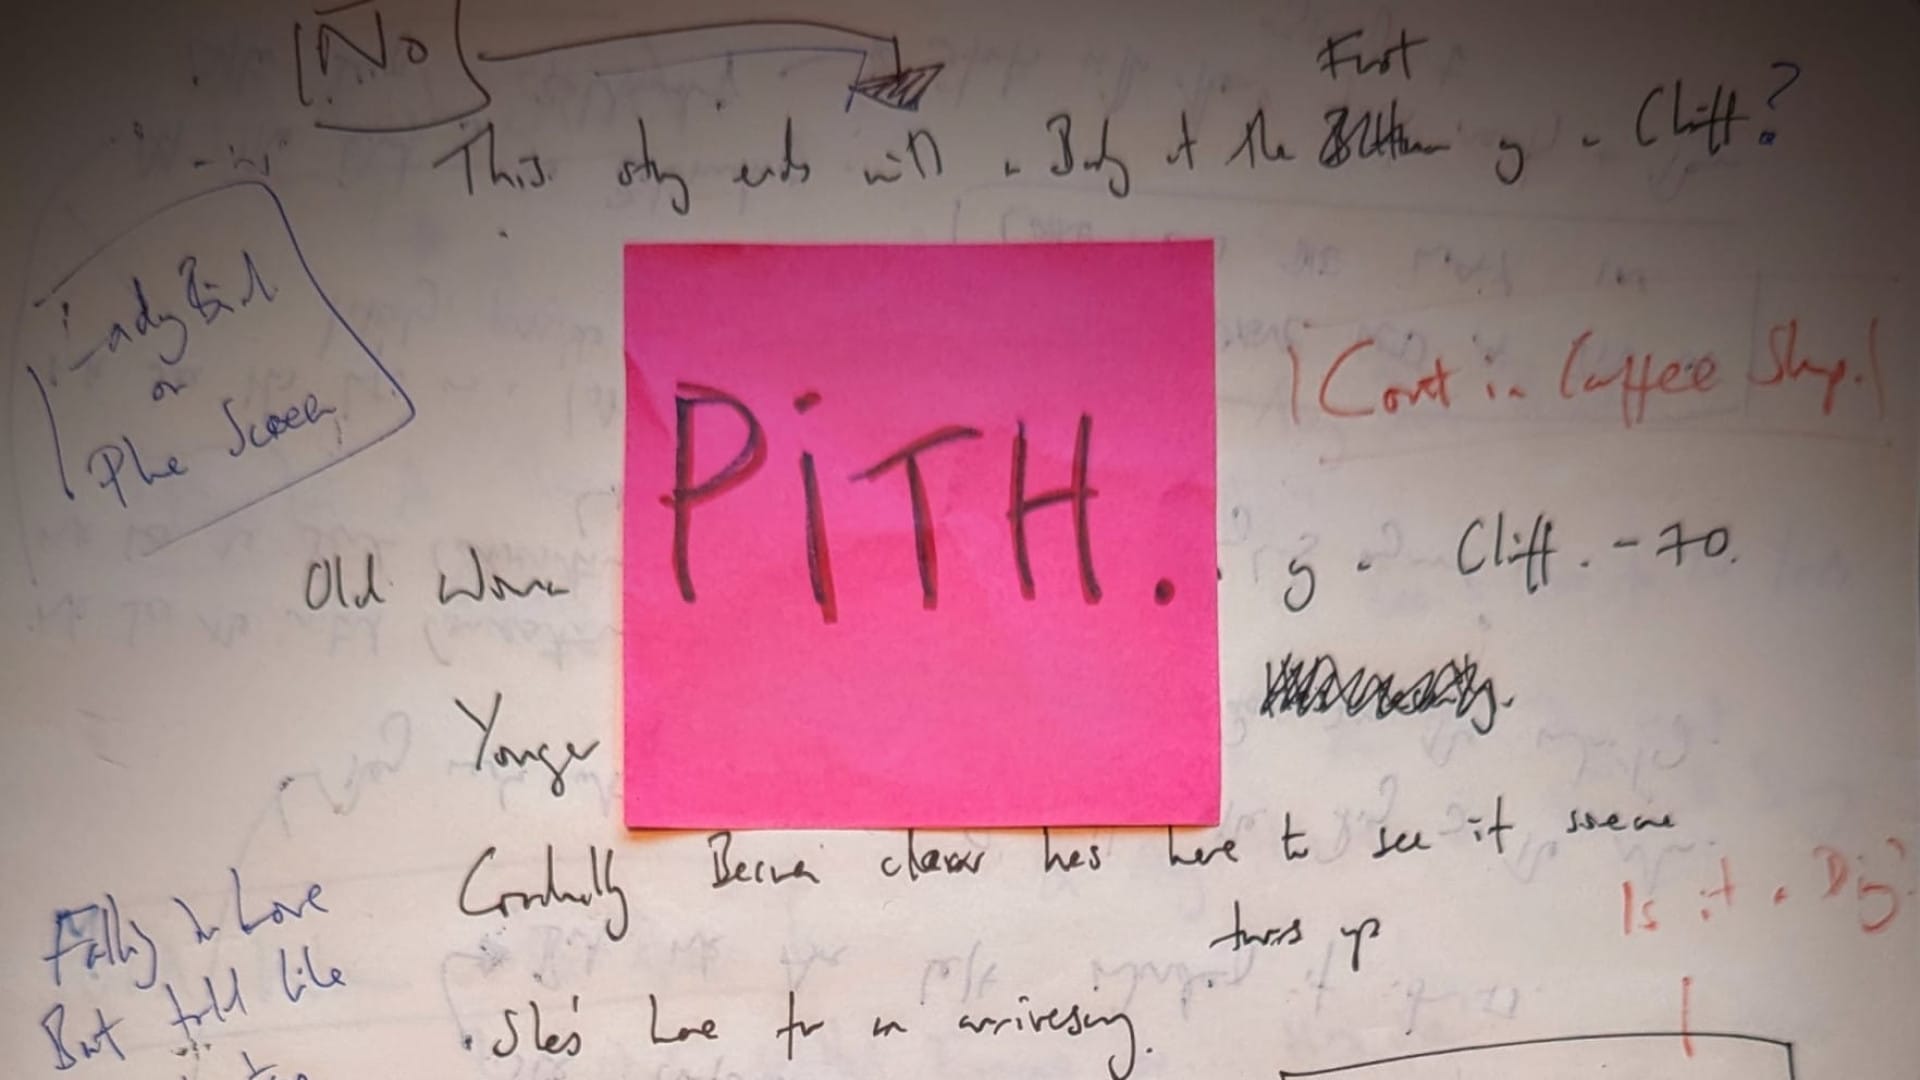 No
Foot
This story ends with a Body at the of a Cliff?
Lady Bird
on
Phone Screen
PiTH.
Court in Coffee Shop.
Old Woman
of a Cliff. - 70.
Yonger
Gradually Becomes clear hes here to see if someone
turns up
Is it a Dig?
Falling in Love
But told like
She's here for an anniversary.